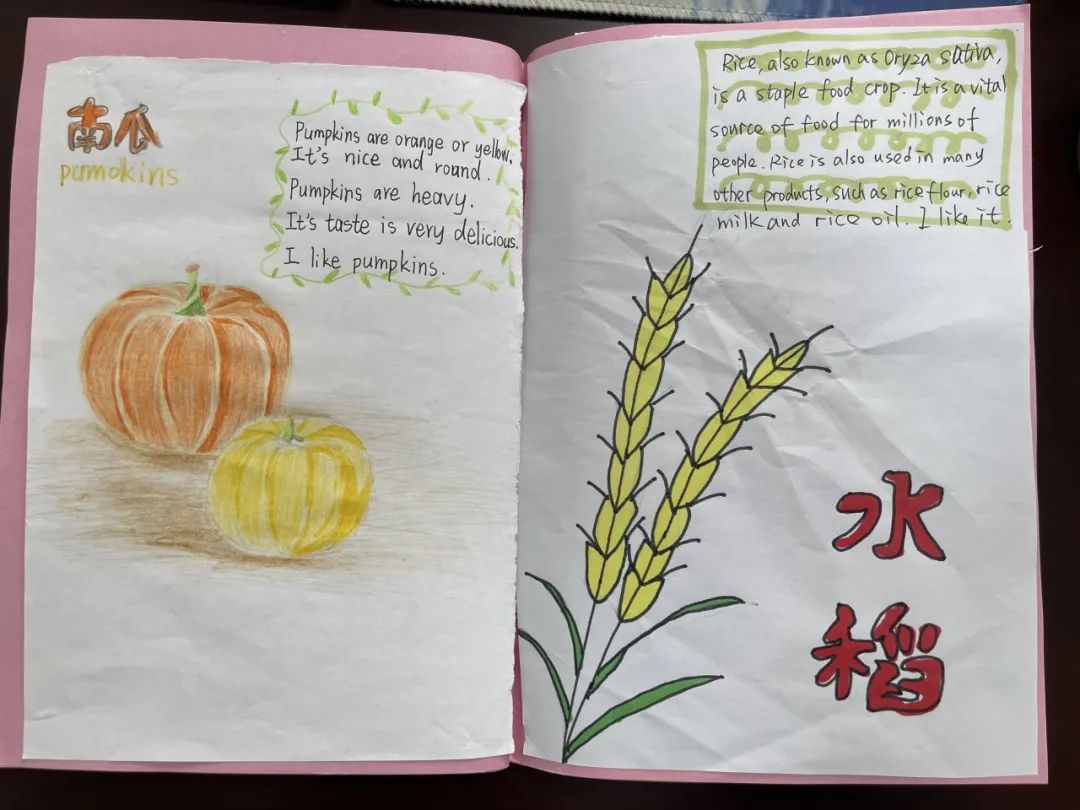 南瓜
pumokins
Pumpkins are orange or yellow.
It's nice and round.
Pumpkins are heavy.
It's taste is very delicious.
I like pumpkins.
Rice, also known as Oryza sativa,
is a staple food crop. It is a vital
source of food for millions of
people. Rice is also used in many
other products, such as rice flour, rice
milk and rice oil. I like it.
水
稻